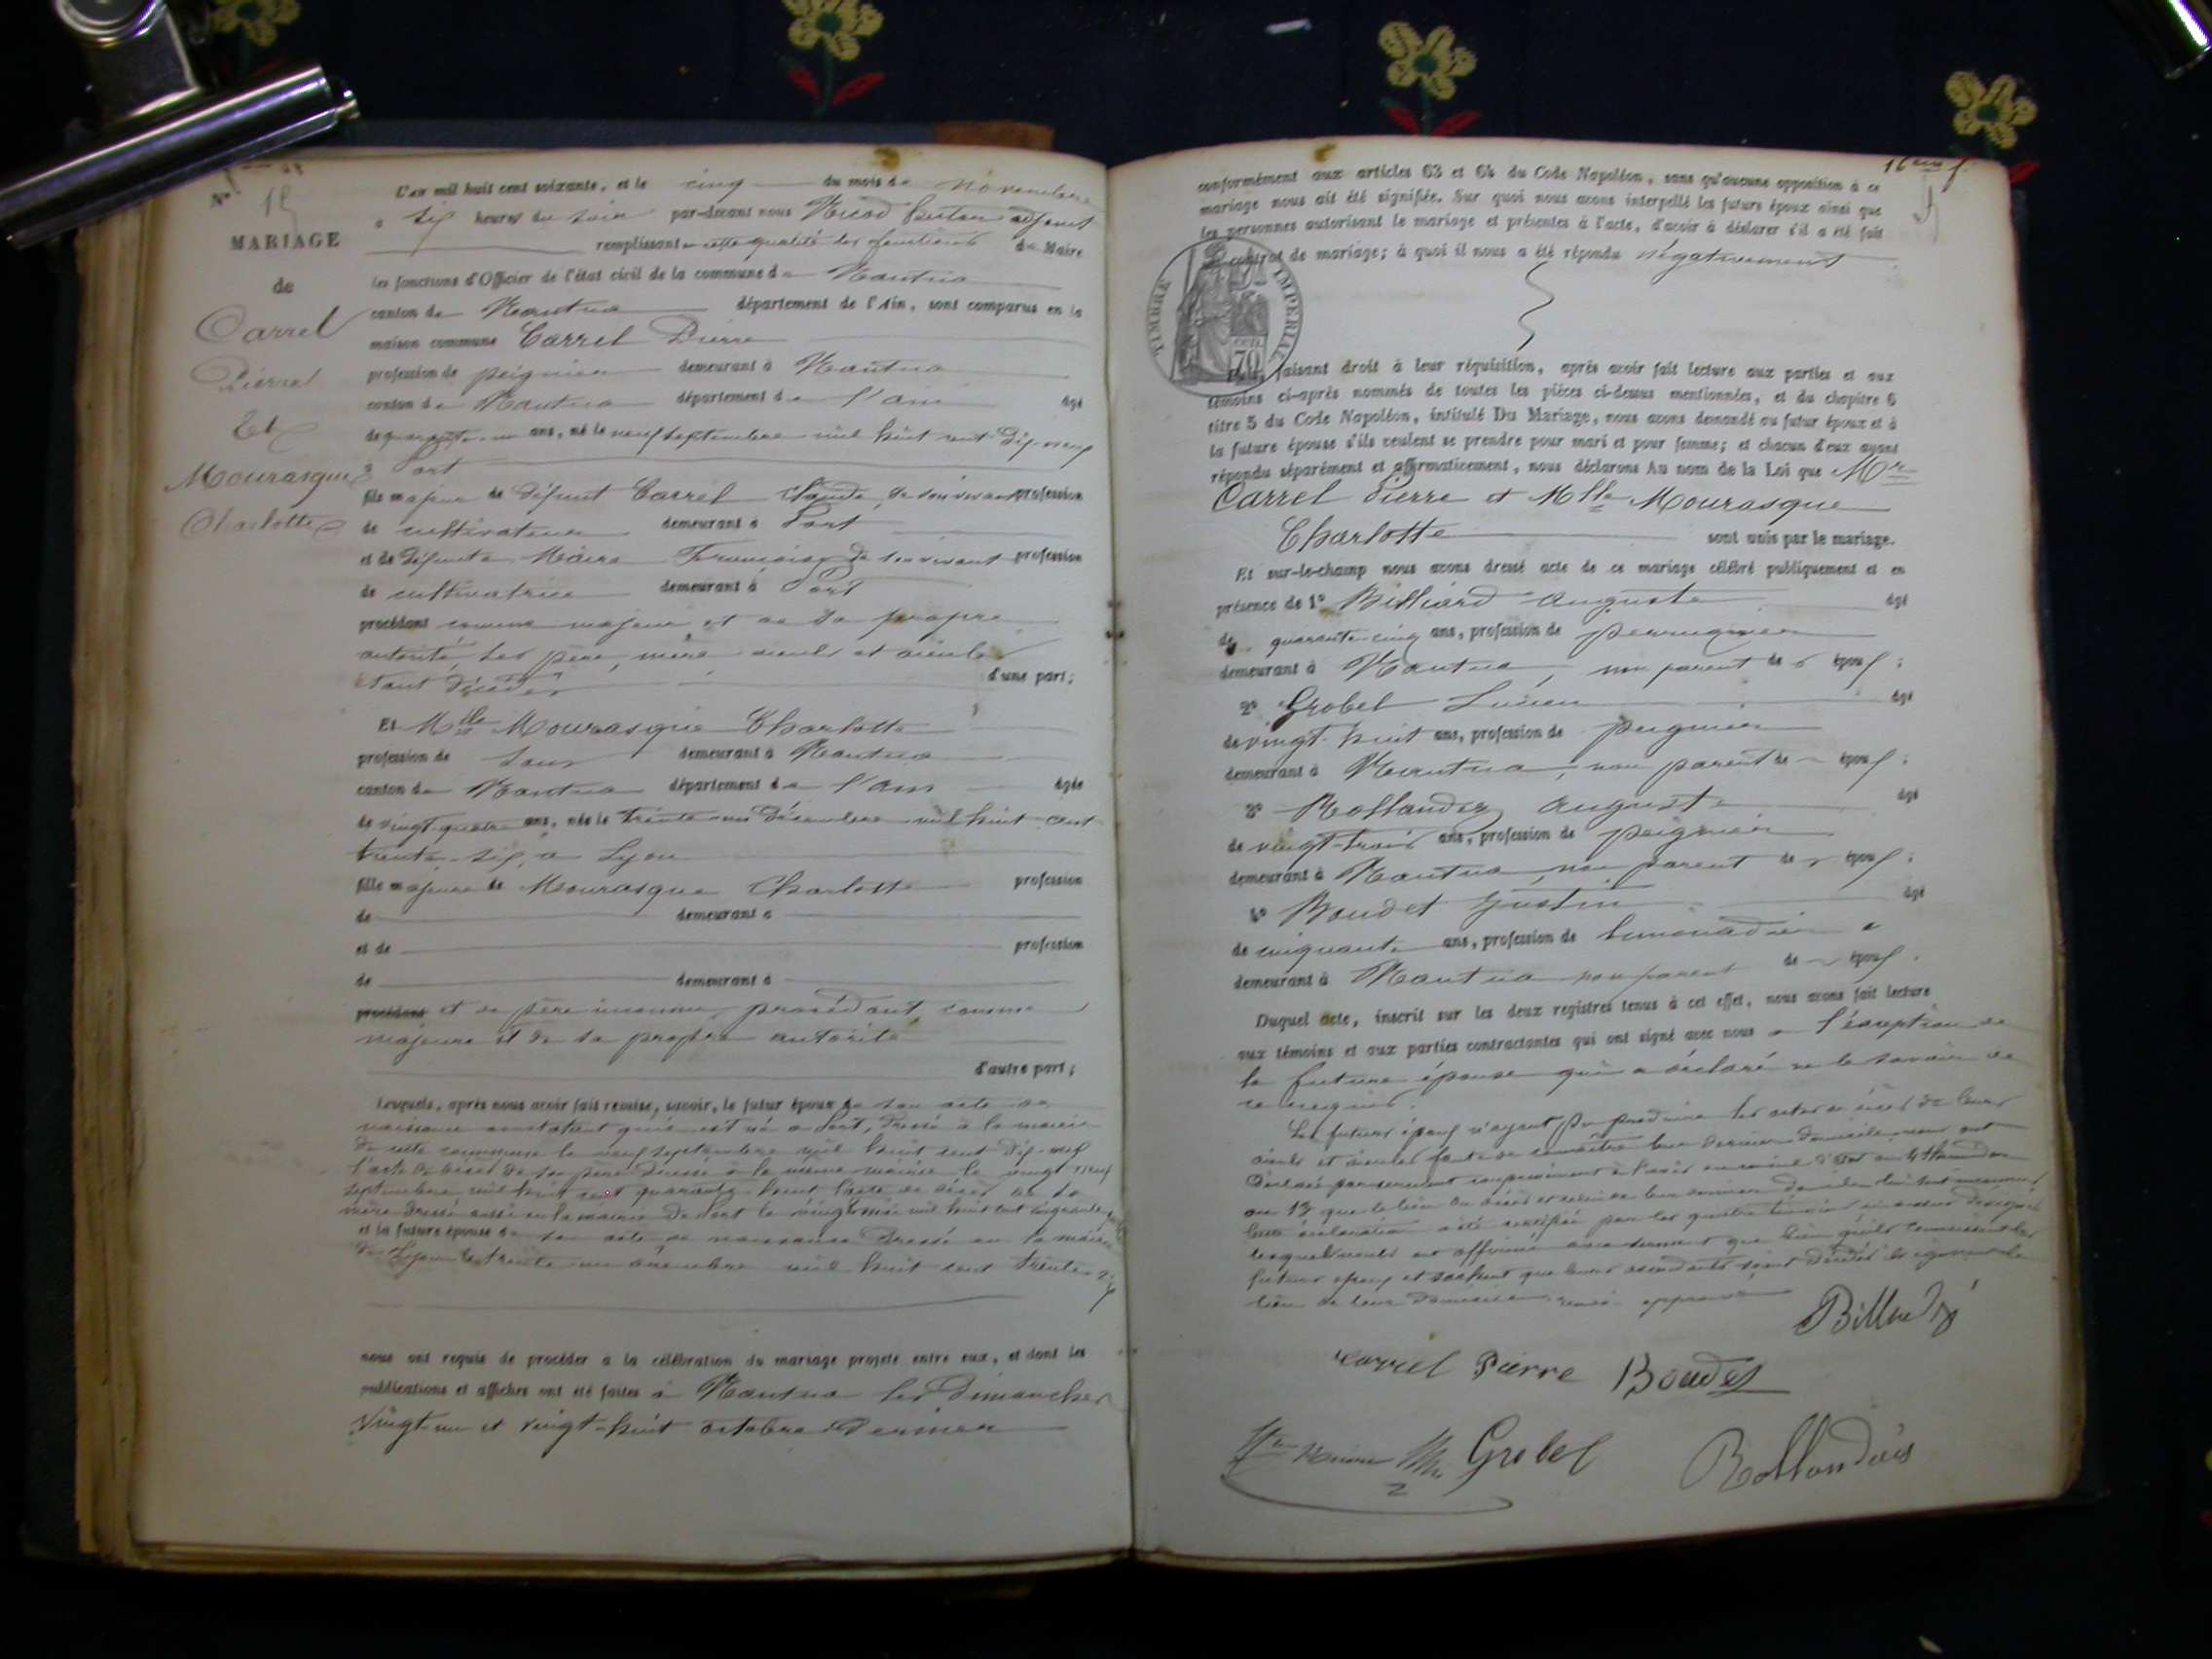 N° 15
MARIAGE
de
Carrel
Pierre
Et
Mourasque
Charlotte
L'an mil huit cent soixante, et le cinq du mois de novembre
à six heures du soir par-devant nous adjoint
remplissant en cette qualité les fonctions de Maire
les fonctions d'Officier de l'état civil de la commune de Nantua
canton de Nantua département de l'Ain, sont comparus en la
maison commune Carrel Pierre
profession de peignier demeurant à Nantua
canton de Nantua département de l'ain âgé
de quarante-un ans, né le neuf septembre mil huit cent dix-neuf
à Port
fils majeur de défunt Carrel Claude, de son vivant profession
de cultivateur demeurant à Port
et de défunte Françoise de son vivant profession
de cultivatrice demeurant à Port
procédant comme majeur et de sa propre
autorité, ses père, mère aieuls et aieules
étant décédés d'une part;
Et Mlle Mourasque Charlotte
profession de sans demeurant à Nantua
canton de Nantua département de l'ain âgée
de vingt-quatre ans, née le trente-un décembre mil huit cent
trente-six, à Lyon
fille majeure de Mourasque Charlotte profession
de demeurant à
et de profession
de demeurant à
procédant et de père inconnu, procédant comme
majeure et de sa propre autorité
d'autre part;
Lesquels, après nous avoir fait remise, savoir, le futur époux de son acte de
naissance constatant qu'il est né à Port, dressé à la mairie
de cette commune le neuf septembre mil huit cent dix-neuf
l'acte de décès de son père dressé à la même mairie le vingt neuf
septembre mil huit cent quarante huit l'acte de décès de sa
mère dressé aussi en la mairie de Port le vingt mai mil huit cent cinquante
et la future épouse de son acte de naissance dressé en la mairie
de Lyon le trente-un décembre mil huit cent trente-six
nous ont requis de procéder à la célébration du mariage projeté entre eux, et dont les
publications et affiches ont été faites à Nantua les dimanches
vingt-un et vingt-huit octobre dernier
conformément aux articles 63 et 64 du Code Napoléon, sans qu'aucune opposition à ce
mariage nous ait été signifiée. Sur quoi nous avons interpellé les futurs époux ainsi que
les personnes autorisant le mariage et présentes à l'acte, d'avoir à déclarer s'il a été fait
contrat de mariage; à quoi il nous a été répondu négativement
TIMBRE IMPERIAL
70
faisant droit à leur réquisition, après avoir fait lecture aux parties et aux
témoins ci-après nommés de toutes les pièces ci-dessus mentionnées, et du chapitre 6
titre 5 du Code Napoléon, intitulé Du Mariage, nous avons demandé au futur époux et à
la future épouse s'ils veulent se prendre pour mari et pour femme; et chacun d'eux ayant
répondu séparément et affirmativement, nous déclarons Au nom de la Loi que Mr
Carrel Pierre et Mlle Mourasque
Charlotte sont unis par le mariage.
Et sur-le-champ nous avons dressé acte de ce mariage célébré publiquement et en
présence de 1° Billiard Auguste âgé
de quarante-cinq ans, profession de perruquier
demeurant à Nantua, non parent des époux;
2° Grobel Lucien âgé
de vingt-huit ans, profession de peignier
demeurant à Nantua, non parent des époux;
3° Auguste âgé
de vingt-trois ans, profession de peignier
demeurant à Nantua, non parent des époux;
4° Boudet Justin âgé
de cinquante ans, profession de limonadier
demeurant à Nantua non parent des époux.
Duquel acte, inscrit sur les deux registres tenus à cet effet, nous avons fait lecture
aux témoins et aux parties contractantes qui ont signé avec nous à l'exception de
la future épouse qui a déclaré ne le savoir de
ce requise.
Les futurs époux n'ayant pu produire les actes de décès de leurs
aieuls et aieules faute de connaître leur dernier domicile nous ont
déclaré par serment conformément à l'avis du conseil d'Etat du 4 thermidor
an 13 que le lieu du décès et celui de leur dernier domicile leur sont inconnus
cette déclaration a été certifiée par les quatre témoins ci-dessus désignés
lesquels nous ont affirmé avec serment que bien qu'ils connaissent les
futurs époux et sachent que leurs ascendants sont décédés ils ignorent le
lieu de leur domicile
Carrel Pierre Boudet
Grobel